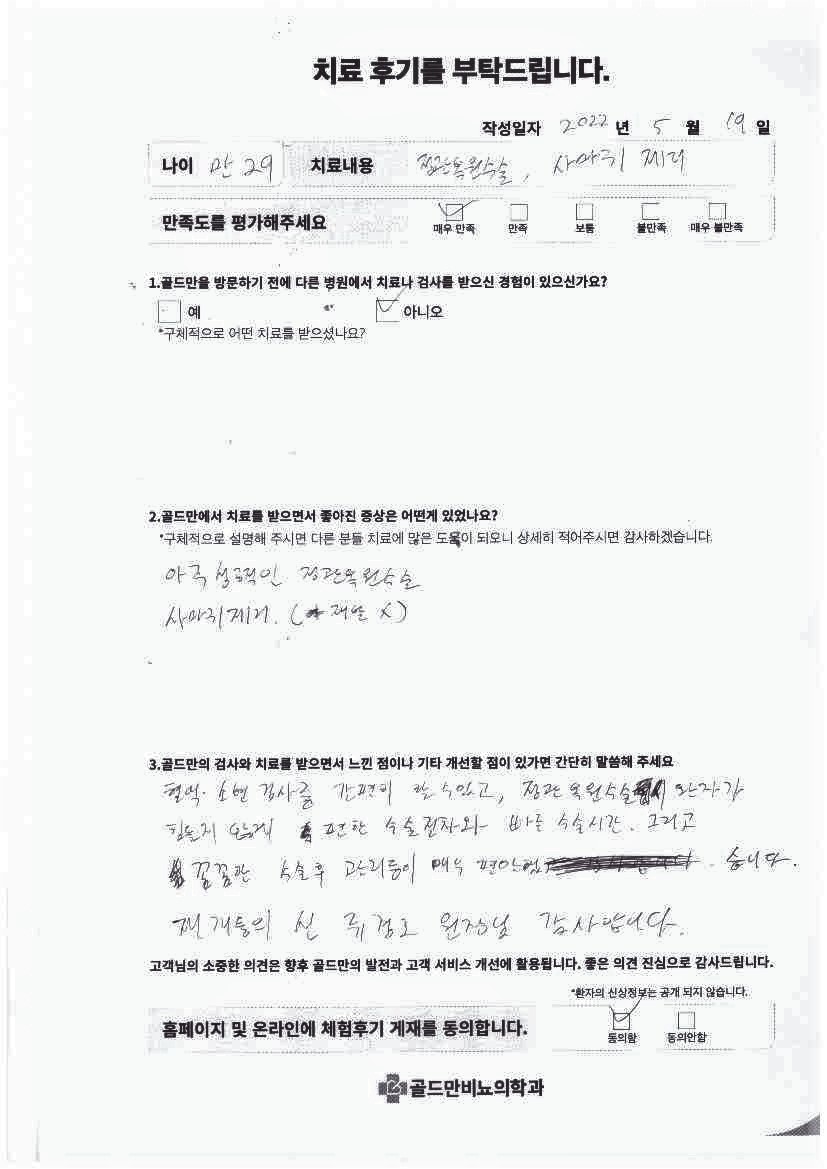 치료 후기를 부탁드립니다.
작성일자 2022 년 5 월 19 일
나이 만 29 치료내용 정관복원수술, 사마귀 제거
만족도를 평가해주세요 매우 만족 만족 보통 불만족 매우 불만족
1.골드만을 방문하기 전에 다른 병원에서 치료나 검사를 받으신 경험이 있으신가요?
예 아니오
*구체적으로 어떤 치료를 받으셨나요?
2.골드만에서 치료를 받으면서 좋아진 증상은 어떤게 있었나요?
*구체적으로 설명해 주시면 다른 분들 치료에 많은 도움이 되오니 상세히 적어주시면 감사하겠습니다.
아주 성공적인 정관복원수술
사마귀제거. (재발 X)
3.골드만의 검사와 치료를 받으면서 느낀 점이나 기타 개선할 점이 있가면 간단히 말씀해 주세요
혈액·소변 검사를 간편히 할 수 있고, 정관복원수술 환자가
힘들지 않게 편한 수술절차와 빠른 수술시간. 그리고
꼼꼼한 수술후 관리등이 매우 편안했 습니다.
재개통의 신 원장님 감사합니다.
고객님의 소중한 의견은 향후 골드만의 발전과 고객 서비스 개선에 활용됩니다. 좋은 의견 진심으로 감사드립니다.
*환자의 신상정보는 공개 되지 않습니다.
홈페이지 및 온라인에 체험후기 게재를 동의합니다. 동의함 동의안함
골드만비뇨의학과